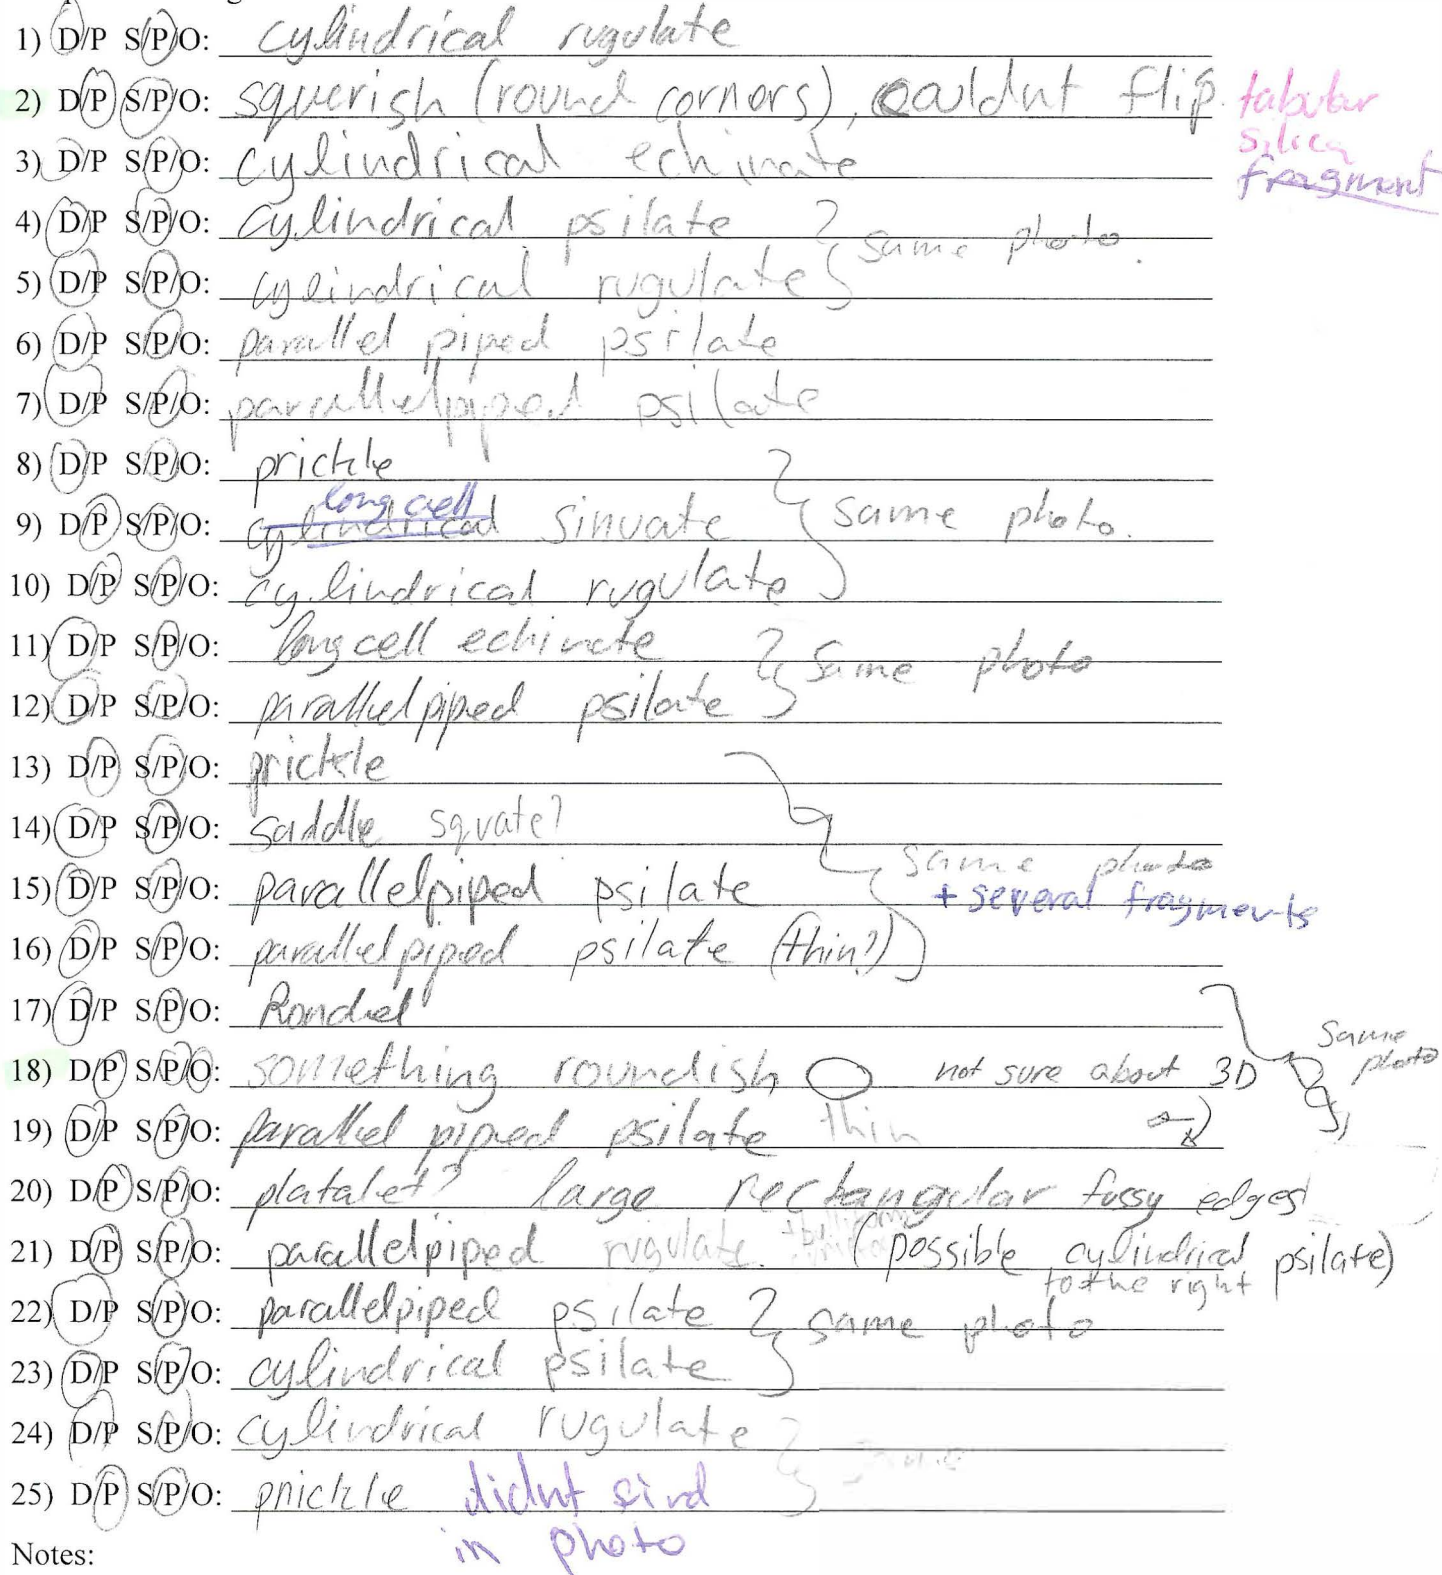 1) D/P S/P/O: cylindrical rugulate
2) D/P S/P/O: squerish (round corners), couldnt flip. tabular
silica
fragment
3) D/P S/P/O: cylindrical echinate
4) D/P S/P/O: cylindrical psilate } same photo.
5) D/P S/P/O: cylindrical rugulate
6) D/P S/P/O: parallel piped psilate
7) D/P S/P/O: parallelpiped psilate
8) D/P S/P/O: prickle
long cell
9) D/P S/P/O: cylindrical sinuate } same photo.
10) D/P S/P/O: cylindrical rugulate
11) D/P S/P/O: long cell echinate } same photo
12) D/P S/P/O: parallelpiped psilate
13) D/P S/P/O: prickle
14) D/P S/P/O: saddle squate?
same photo
15) D/P S/P/O: parallelpiped psilate + several fragments
16) D/P S/P/O: parallelpiped psilate (thin?)
17) D/P S/P/O: Rondel
same
photo
18) D/P S/P/O: something roundish not sure about 3D
19) D/P S/P/O: parallel piped psilate thin
20) D/P S/P/O: platalet? large rectangular fussy edges
21) D/P S/P/O: parallelpiped rugulate. (possible cylindrical psilate)
to the right
22) D/P S/P/O: parallelpiped psilate } same photo
23) D/P S/P/O: cylindrical psilate
24) D/P S/P/O: cylindrical rugulate } same
25) D/P S/P/O: prickle didnt find
in photo
Notes: